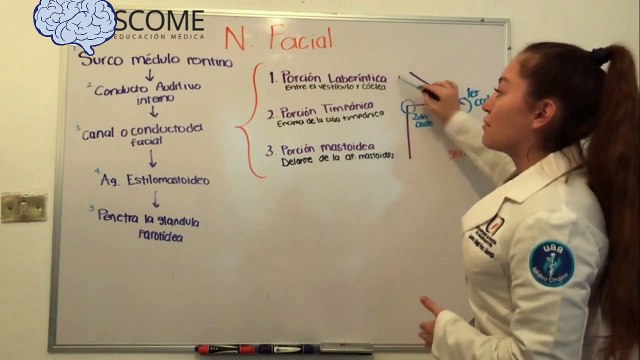 SCOME
EDUCACIÓN MÉDICA
N. Facial
1. Surco médulo pontino
2. Conducto Auditivo
interno
3. Canal o conducto del
facial
4. Ag. Estilomastoideo
5. Penetra la glandula
Parotidea
1. Porción Laberíntica
Entre el vestíbulo y cóclea
2. Porción Timpánica
Encima de la caja timpánica
3. Porción mastoidea
Delante de la ap. mastoides
1er
codo
2do
codo
uaa
Médico Cirujano